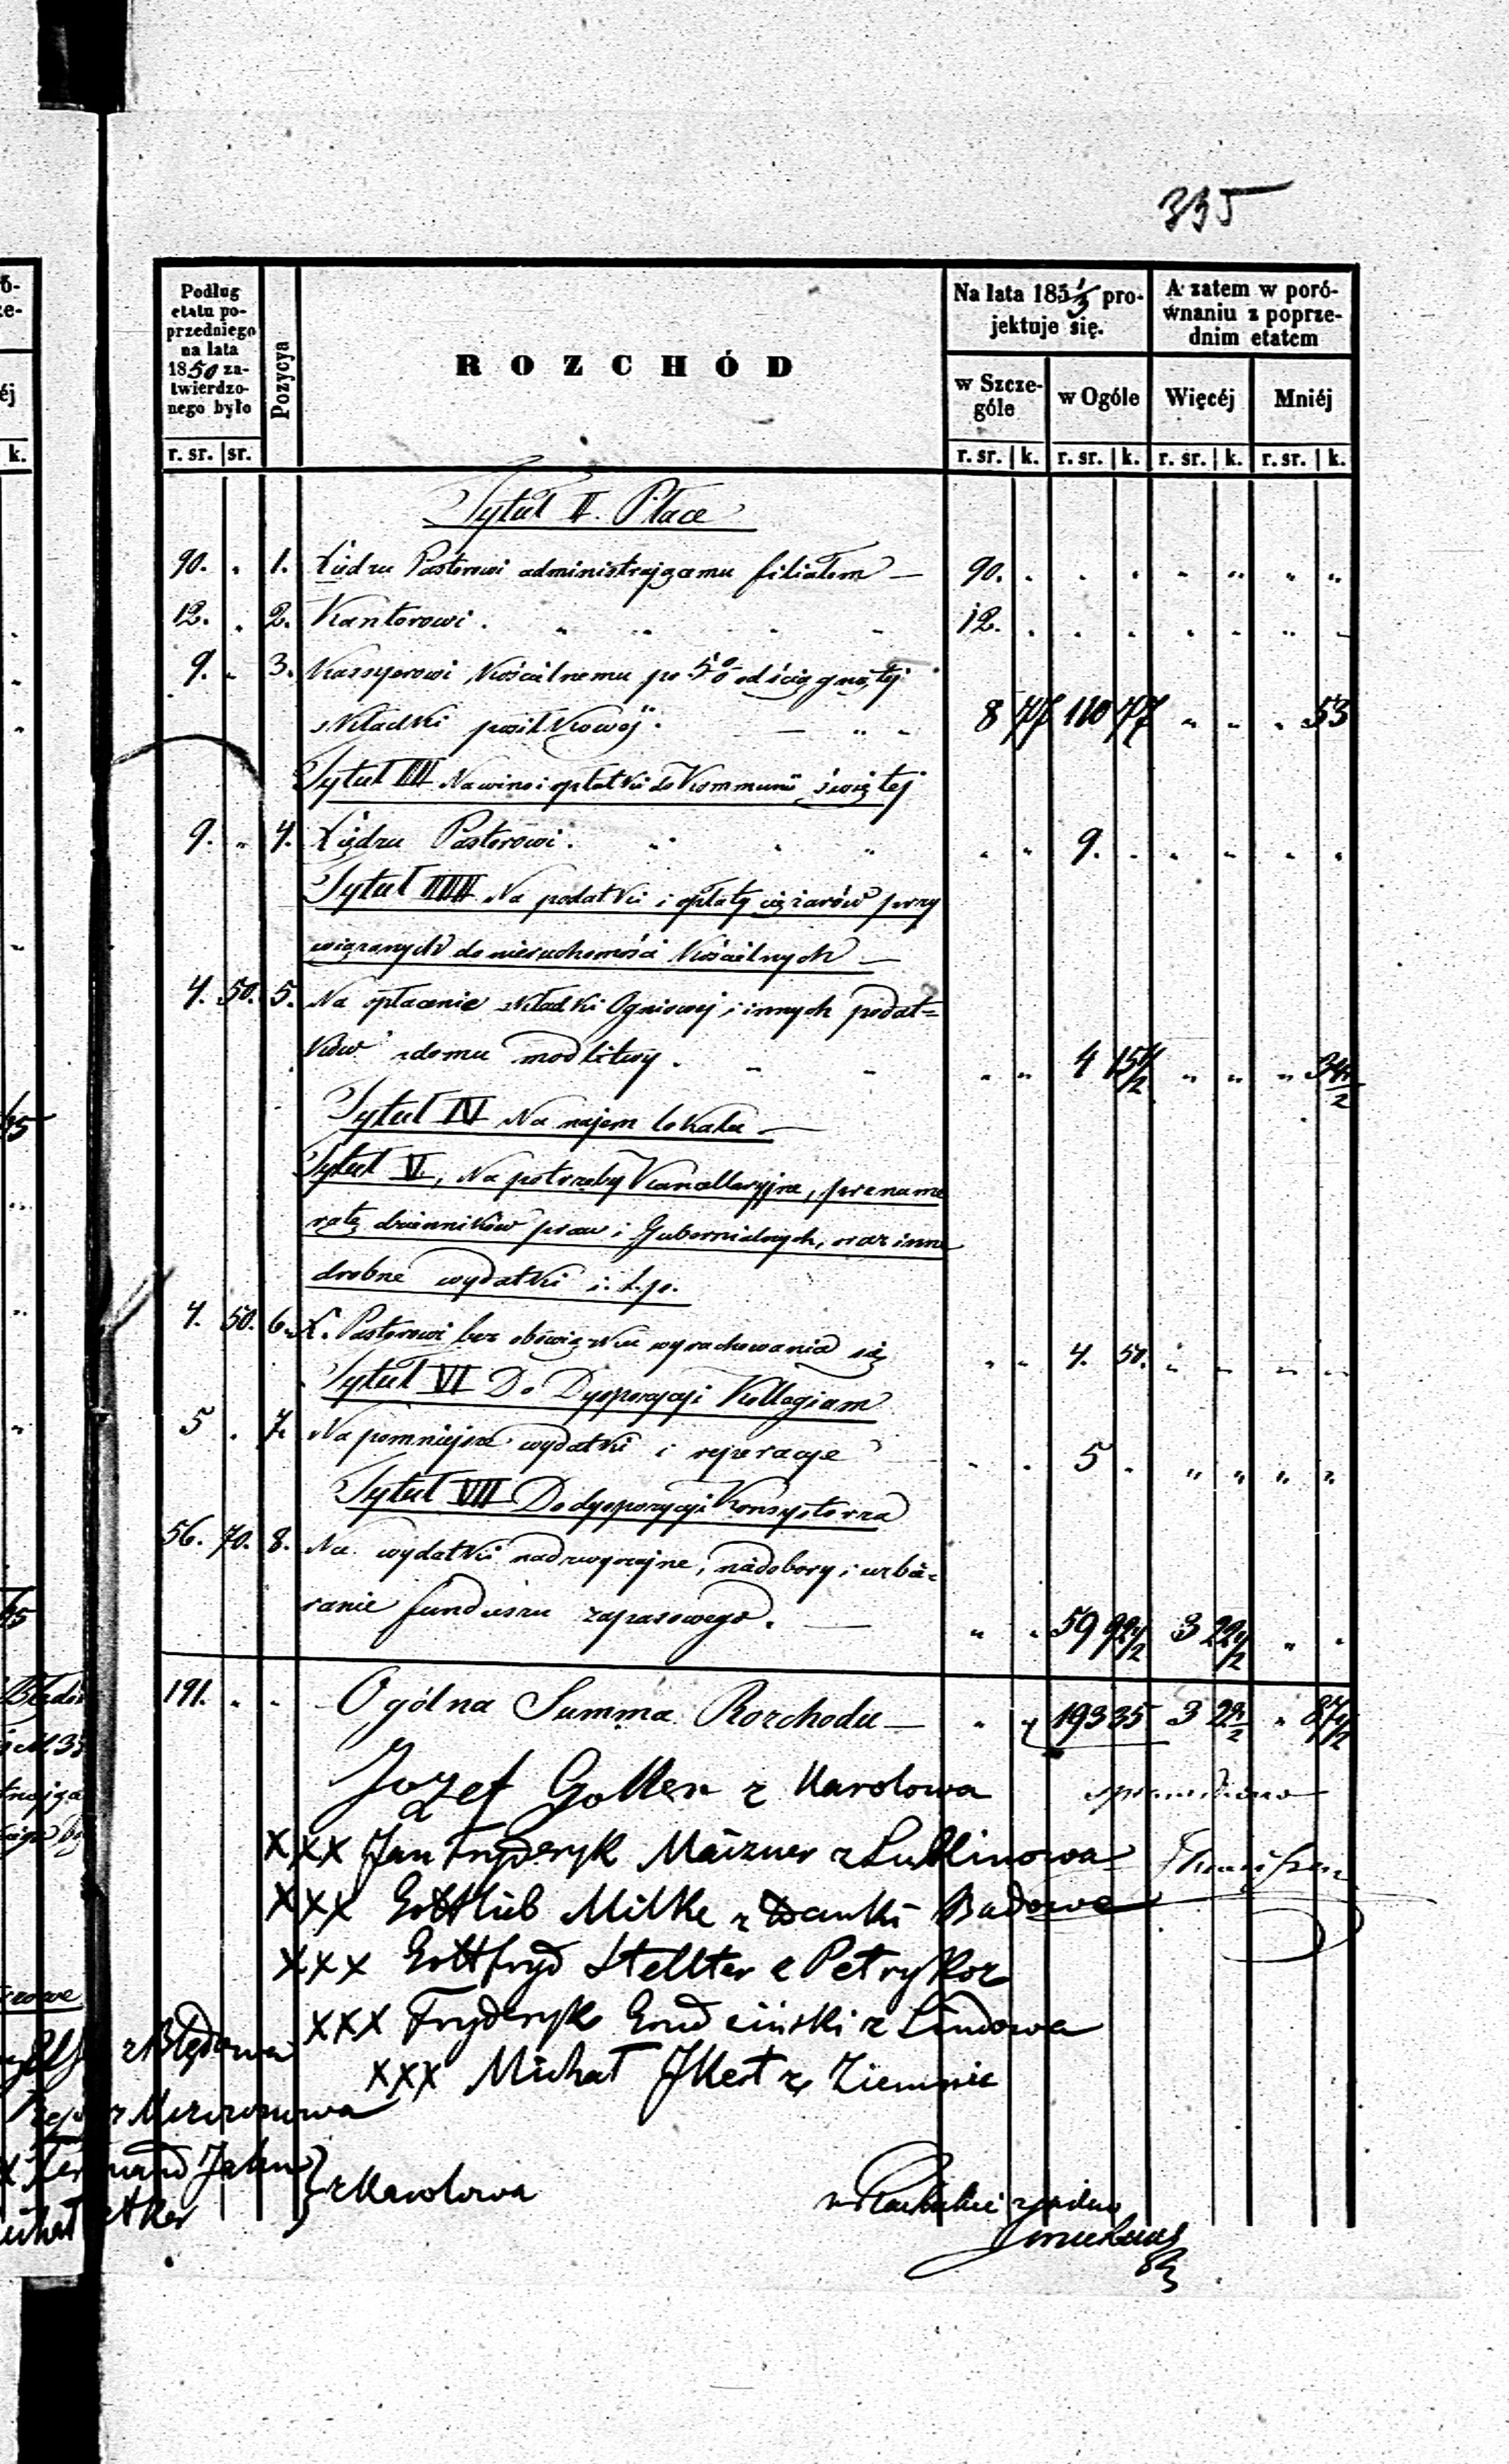 335
Podług etatu poprzedniego na lata 1850 zatwierdzonego było
Pozycya
ROZCHÓD
Na lata 185 1/3 projektuje się.
A zatem w porównaniu z poprzednim etatem
w Szczególe
w Ogóle
Więcéj
Mniéj
r. sr. | sr.
r. sr. | k. r. sr. | k. r. sr. | k. r. sr. | k.
Tytuł II. Płace
90. " 1. Xiędzu Pastorowi administrającemu filiałem — 90. " " " " " " "
12. " 2. Kantorowi. " " " " 12. " " " " " " "
9. " 3. Kassyerowi Kościelnemu po 5% od ściągnętej
składki posiłkowéj. — " " 8 77 110 77 " " " 53
Tytuł III Na wino i opłatki do Kommunii świętej
9. " 4. Xiędzu Pastorowi. " " " " " 9. " " " " "
Tytuł IIII Na podatki i opłaty ciężarów przy
wiązanych do nieruchomości Kościelnych —
4. 50. 5. Na opłacenie składki Ogniowej i innych podat=
ków z domu modlitwy. " " " " 4 15 1/2 " " " 34 1/2
Tytuł IV Na najem lokalu —
Tytuł V, Na potrzeby Kancellaryjne, prenume
ratę dzienników praw i Gubernialnych, oraz inne
drobne wydatki i. t. p.
4. 50. 6. X. Pastorowi bez obowiązku wyrachowania się " " 4. 50. " " " "
Tytuł VI Do Dyspozycyi Kollegium
5 " 7. Na pomniejsze wydatki i reperacje " " 5 " " " " "
Tytuł VII Do dyspozycyi Konsystorza
56. 70. 8. Na wydatki nadzwyczajne, nadobory i uzbie=
ranie funduszu zapasowego. — " " 59 92 1/2 3 22 1/2 " "
191. " " Ogólna Summa Rozchodu — " " 193 35 3 22 1/2 " 87 1/2
Jozef Golker z Karolowa
sprawdzono
XXX Jan Fryderyk Maizner z Lublinowa
XXX Gottlieb Milke z Budowe
XXX Gottfryd Stellter z Petrykoz
XXX Fryderyk z Lindowa
z Błędowa
XXX Michał z Ziemnic
Ferdinand Jahn
z Karolowa